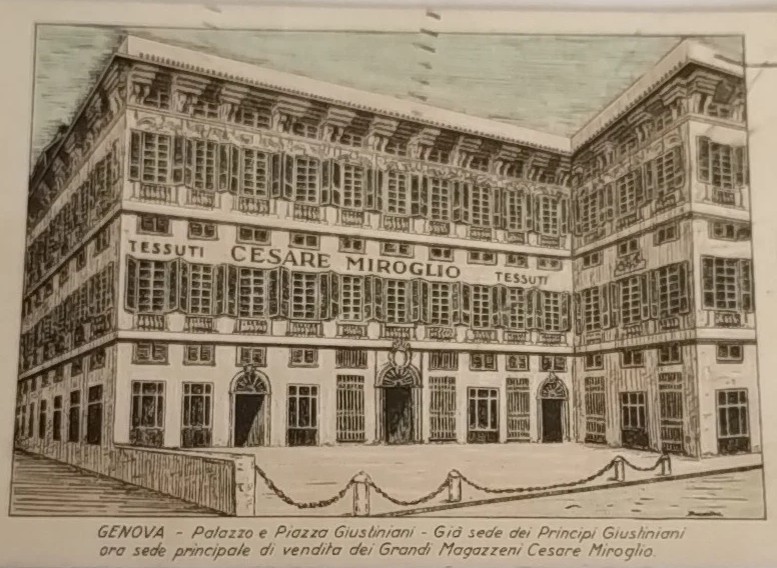 TESSUTI CESARE MIROGLIO TESSUTI
GENOVA - Palazzo e Piazza Giustiniani - Già sede dei Principi Giustiniani
ora sede principale di vendita dei Grandi Magazzeni Cesare Miroglio.